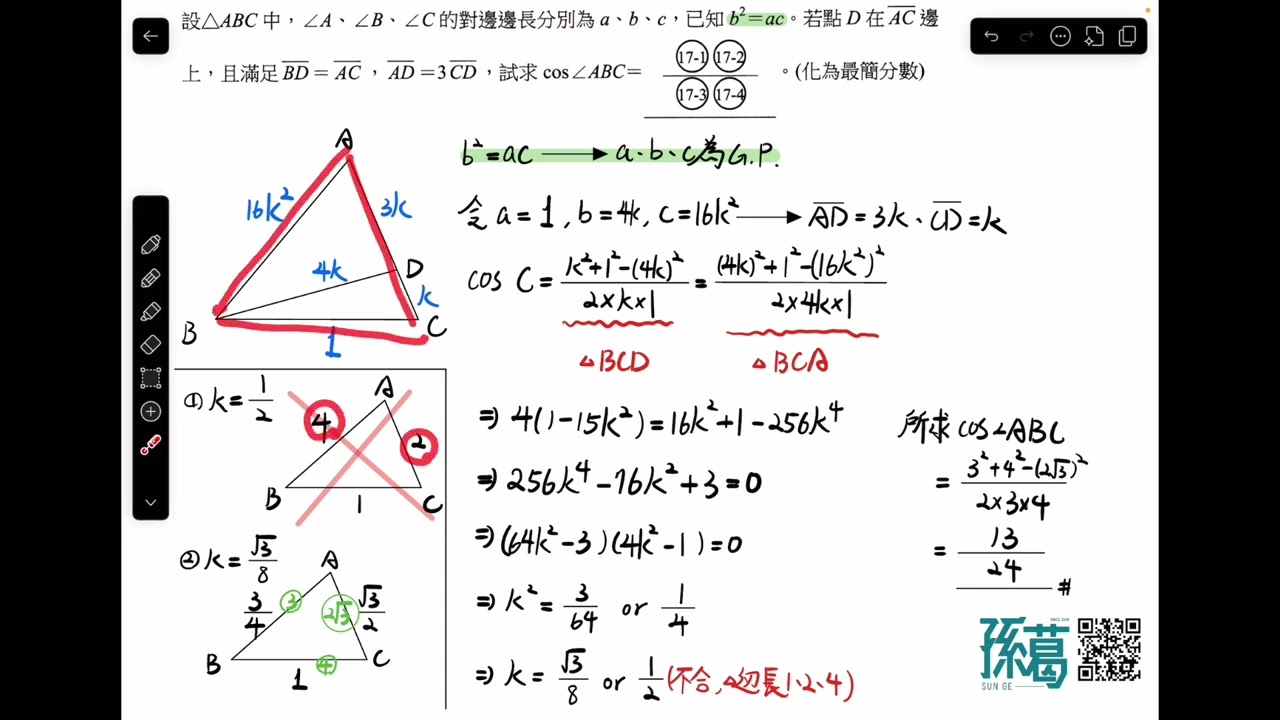 設△ABC 中，∠A、∠B、∠C 的對邊邊長分別為 a、b、c，已知 b²=ac。若點 D 在 AC 邊
上，且滿足 BD = AC，AD = 3 CD，試求 cos∠ABC = (17-1)(17-2) / (17-3)(17-4) 。(化為最簡分數)
b²=ac → a、b、c為G.P.
令 a=1, b=4k, c=16k² → AD=3k、CD=k
cos C = (k²+1²-(4k)²)/(2×k×1) = ((4k)²+1²-(16k²)²)/(2×4k×1)
△BCD △BCA
⇒ 4(1-15k²)=16k²+1-256k⁴
⇒ 256k⁴-76k²+3=0
⇒ (64k²-3)(4k²-1)=0
⇒ k²= 3/64 or 1/4
⇒ k= √3/8 or 1/2 (不合,△邊長1、2、4)
A
16k²
3k
4k
D
k
B
C
1
① k=1/2
A
4
2
B
1
C
② k=√3/8
A
3/4
3
2√3
√3/2
B
4
C
1
所求 cos∠ABC
= (3²+4²-(2√3)²)/(2×3×4)
= 13/24 #
孫葛
SINCE 2018
SUN GE